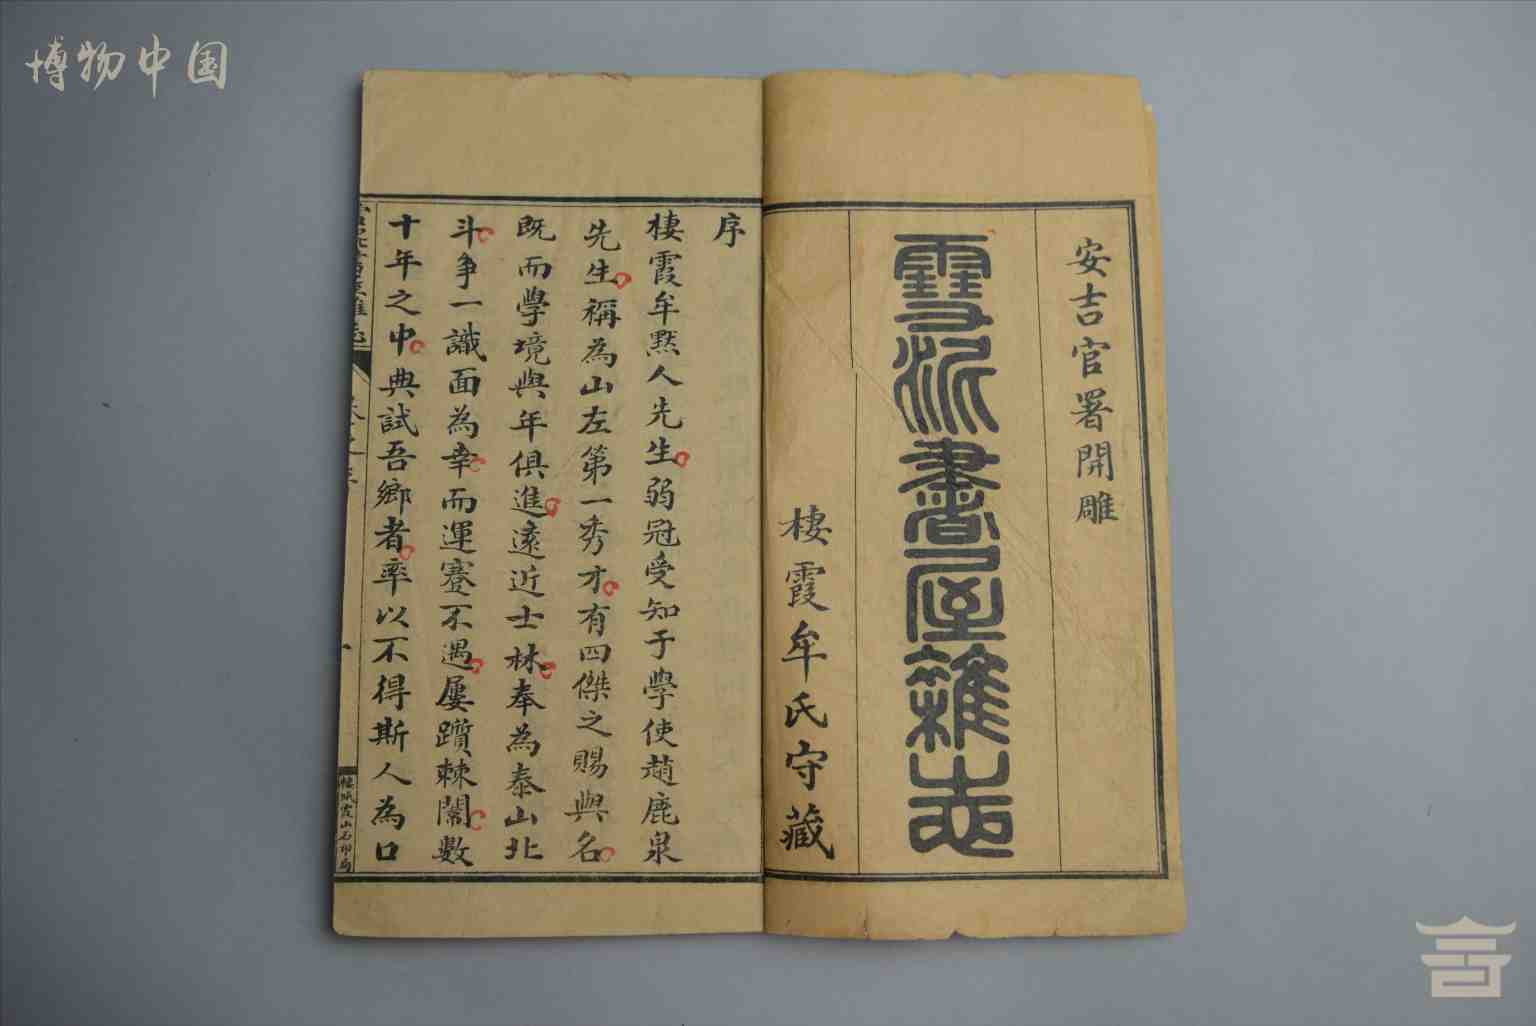 博物中国
安吉官署開雕
雪泥書屋雜志
棲霞牟氏守藏
序
棲霞牟黙人先生弱冠受知于學使趙鹿泉
先生稱為山左第一秀才有四傑之賜與名
既而學境與年俱進遠近士林奉為泰山北
斗争一識面為幸而運蹇不遇屢躓棘闈數
十年之中典試吾鄉者率以不得斯人為口
雪泥書屋雜志
棲霞山石印局